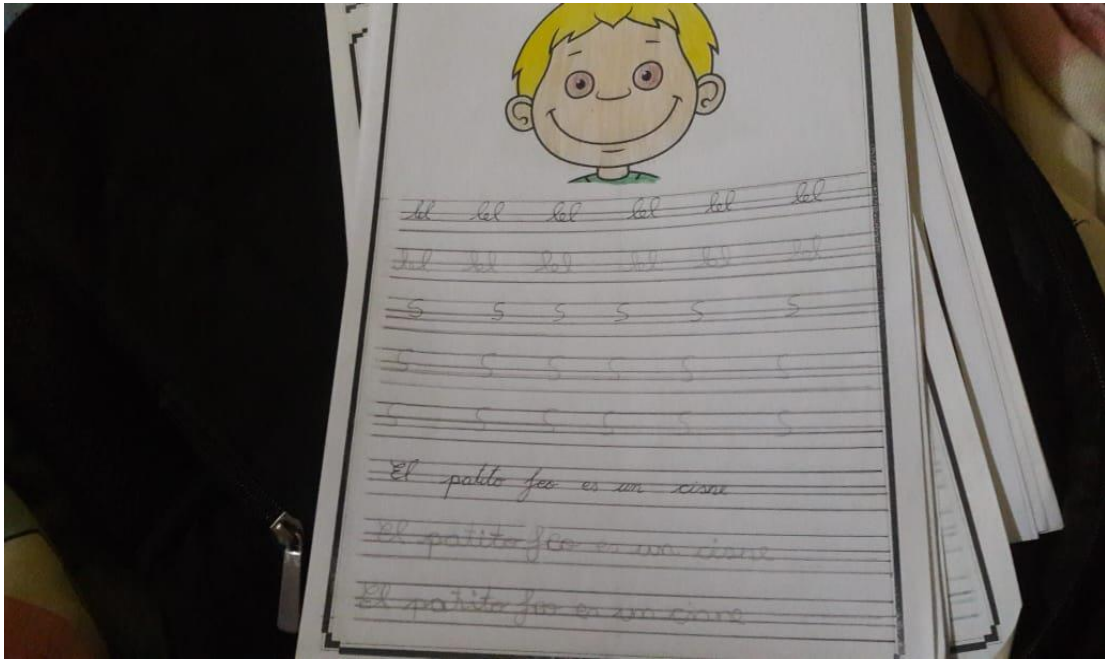 lel lel lel lel lel lel
lel lel lel lel lel lel
S S S S S S
S S S S S S
S S S S S S
El patito feo es un cisne
El patito feo es un cisne
El patito feo es un cisne